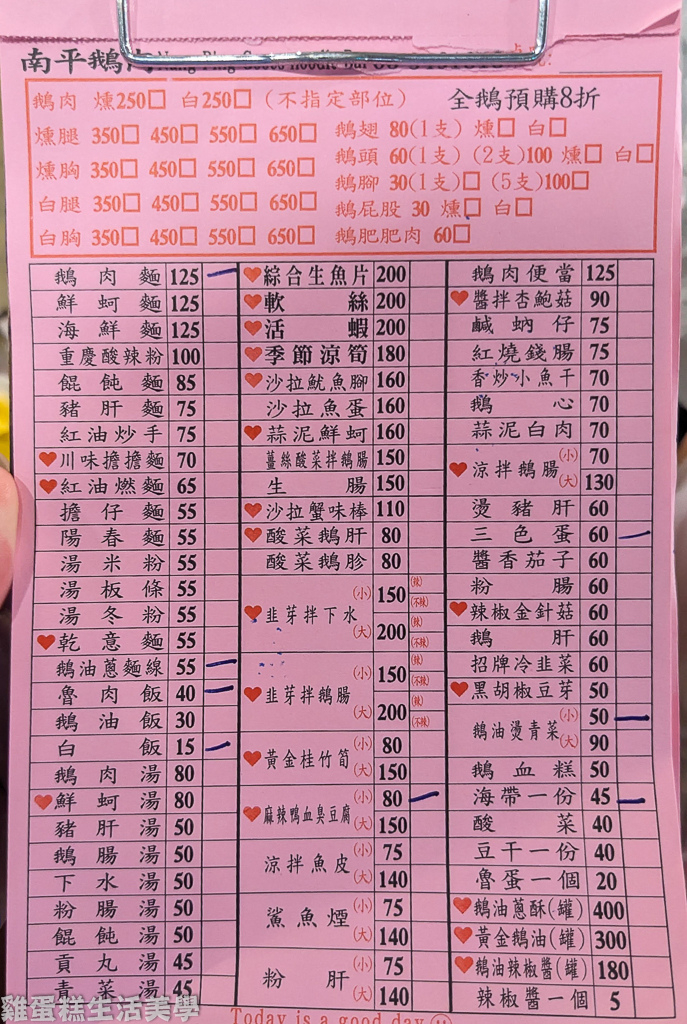 南平鵝肉 Nang Ping Goose Noodle Bar
鵝肉 燻250□ 白250□ (不指定部位) 全鵝預購8折
燻腿 350□ 450□ 550□ 650□
燻胸 350□ 450□ 550□ 650□
白腿 350□ 450□ 550□ 650□
白胸 350□ 450□ 550□ 650□
鵝翅 80(1支) 燻□ 白□
鵝頭 60(1支) (2支)100 燻□ 白□
鵝腳 30(1支)□ (5支)100□
鵝屁股 30 燻□ 白□
鵝肥肥肉 60□
鵝肉麵 125
鮮蚵麵 125
海鮮麵 125
重慶酸辣粉 100
餛飩麵 85
豬肝麵 75
紅油炒手 75
♥川味擔擔麵 70
♥紅油燃麵 65
擔仔麵 55
陽春麵 55
湯米粉 55
湯板條 55
湯冬粉 55
♥乾意麵 55
鵝油蔥麵線 55
魯肉飯 40
鵝油飯 30
白飯 15
鵝肉湯 80
♥鮮蚵湯 80
豬肝湯 50
鵝腸湯 50
下水湯 50
粉腸湯 50
餛飩湯 50
貢丸湯 45
青菜湯 45
♥綜合生魚片 200
♥軟絲 200
♥活蝦 200
♥季節涼筍 180
♥沙拉魷魚腳 160
沙拉魚蛋 160
♥蒜泥鮮蚵 160
薑絲酸菜拌鵝腸 150
生腸 150
♥沙拉蟹味棒 110
♥酸菜鵝肝 80
酸菜鵝胗 80
♥韭芽拌下水 (小) 150 (辣) (不辣)
(大) 200 (辣) (不辣)
♥韭芽拌鵝腸 (小) 150 (辣) (不辣)
(大) 200 (辣) (不辣)
♥黃金桂竹筍 (小) 80
(大) 150
♥麻辣鴨血臭豆腐 (小) 80
(大) 150
涼拌魚皮 (小) 75
(大) 140
鯊魚煙 (小) 75
(大) 140
粉肝 (小) 75
(大) 140
鵝肉便當 125
♥醬拌杏鮑菇 90
鹹蚋仔 75
紅燒錢腸 75
香炒小魚干 70
鵝心 70
蒜泥白肉 70
♥涼拌鵝腸 (小) 70
(大) 130
燙豬肝 60
三色蛋 60
醬香茄子 60
粉腸 60
♥辣椒金針菇 60
鵝肝 60
招牌冷韭菜 60
♥黑胡椒豆芽 50
鵝油燙青菜 (小) 50
(大) 90
鵝血糕 50
海帶一份 45
酸菜 40
豆干一份 40
魯蛋一個 20
♥鵝油蔥酥(罐) 400
♥黃金鵝油(罐) 300
♥鵝油辣椒醬(罐) 180
辣椒醬一個 5
Today is a good day
雞蛋糕生活美學